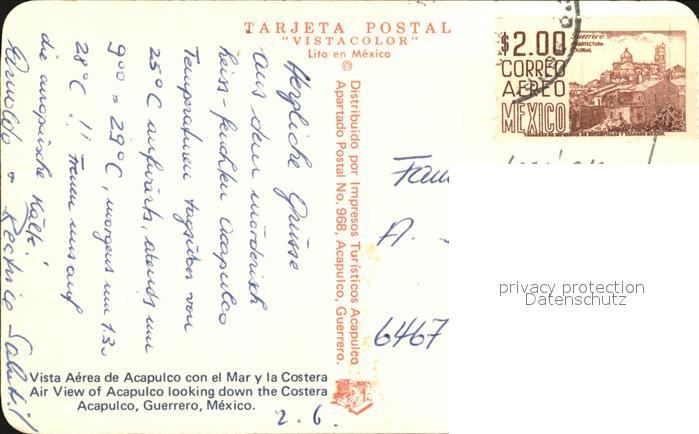 TARJETA POSTAL
"VISTACOLOR"
Lito en México
©
Distribuido por Impresos Turísticos Acapulco
Apartado Postal No. 968, Acapulco, Guerrero.
$2.00
CORREO
AEREO
MEXICO
Guerrero
ARQUITECTURA
COLONIAL
Herzliche Grüsse
aus dem mörderisch
heiss-feuchten Acapulco
Temperaturen tagsüber von
25°C aufwärts, abends um
9⁰⁰ = 29°C, morgens um 1.30
28°C !! Freuen uns auf
die europäische Kälte!
Arnoldo + Salut!
Fam
A.
6467
privacy protection
Datenschutz
Vista Aérea de Acapulco con el Mar y la Costera
Air View of Acapulco looking down the Costera
Acapulco, Guerrero, México.
2.6.